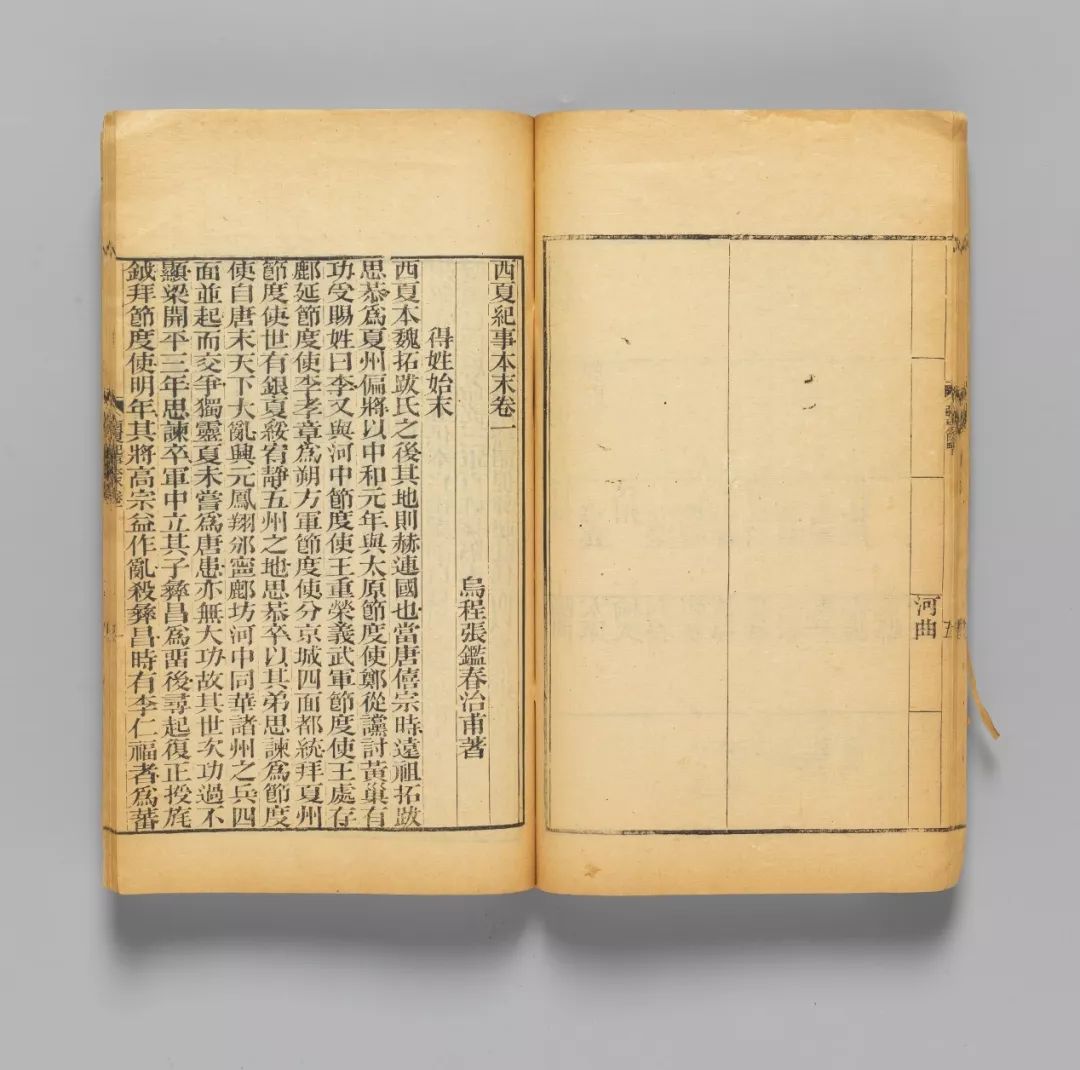 河曲
西夏紀事本末卷一
烏程張鑑春治甫著
得姓始末
西夏本魏拓跋氏之後其地則赫連國也當唐僖宗時遠祖拓跋
思恭爲夏州偏將以中和元年與太原節度使鄭從讜討黃巢有
功受賜姓曰李又與河中節度使王重榮義武軍節度使王處存
鄜延節度使李孝章爲朔方軍節度使分京城四面都統拜夏州
節度使世有銀夏綏宥靜五州之地思恭卒以其弟思諫爲節度
使自唐末天下大亂興元鳳翔邠寧鄜坊河中同華諸州之兵四
面並起而交爭獨靈夏未嘗爲唐患亦無大功故其世次功過不
顯梁開平三年思諫卒軍中立其子彝昌爲畱後尋起復正授旄
鉞拜節度使明年其將高宗益作亂殺彝昌時有李仁福者爲蕃